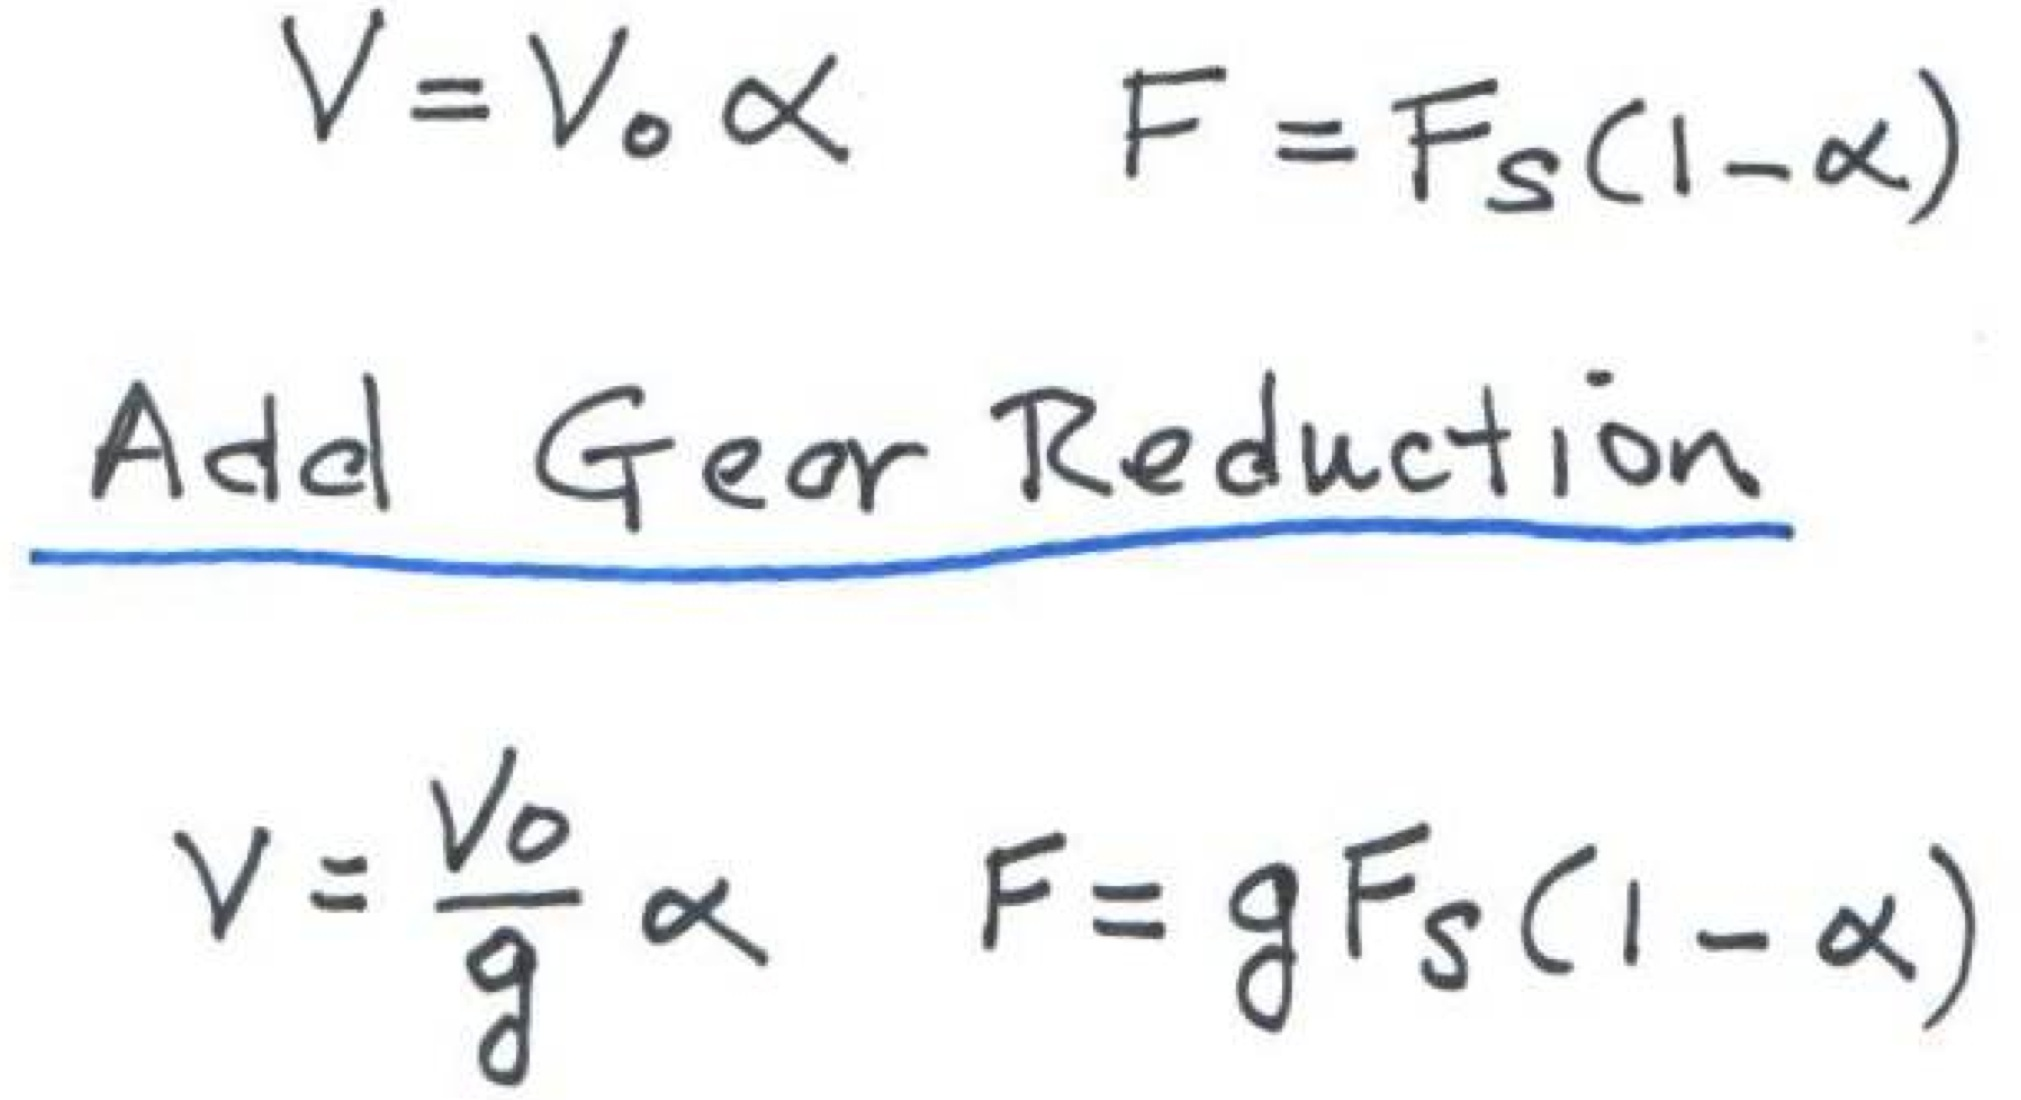 V = V₀ α    F = Fₛ(1-α)
Add Gear Reduction
V = V₀/g α    F = gFₛ(1-α)